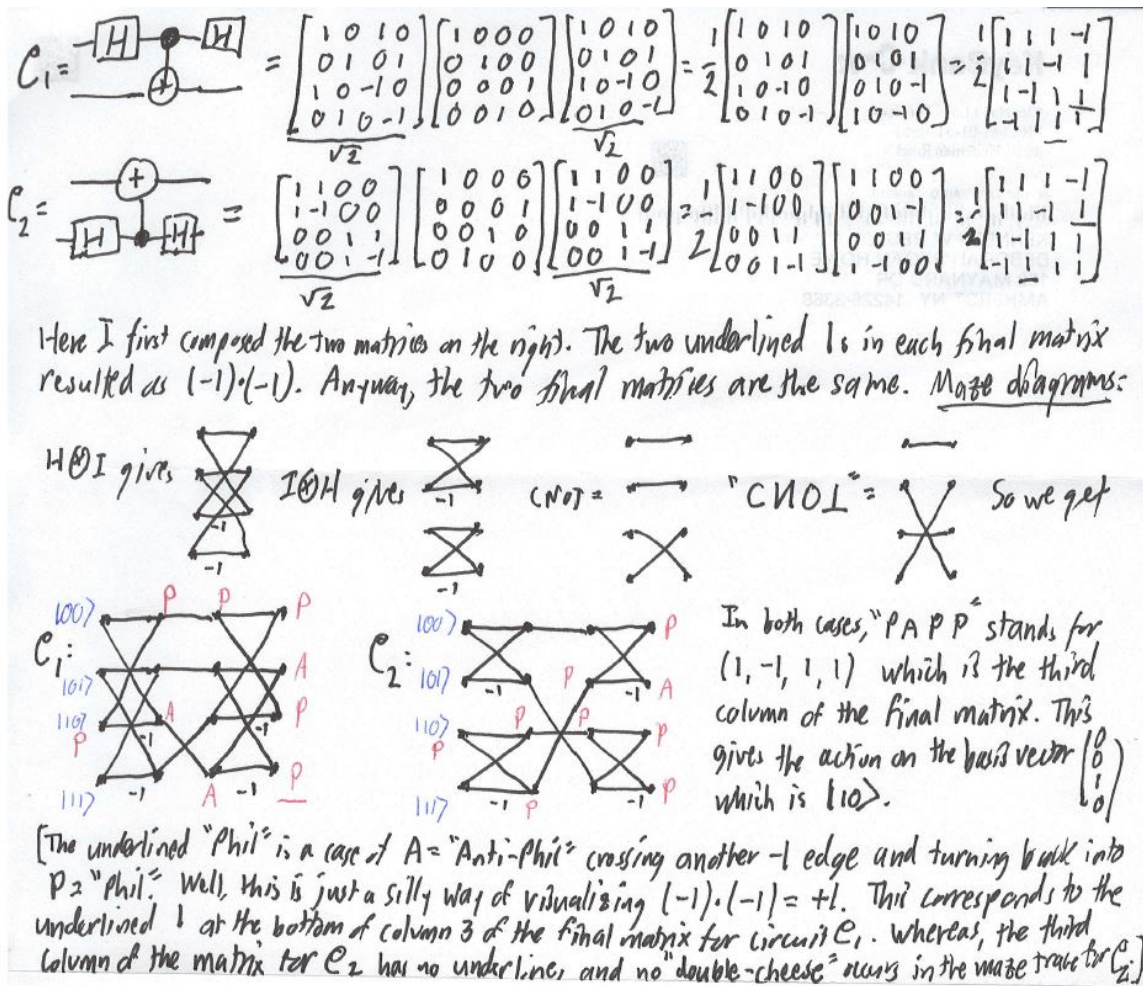 C₁ = H H = [1 0 1 0 / 0 1 0 1 / 1 0 -1 0 / 0 1 0 -1] [1 0 0 0 / 0 1 0 0 / 0 0 0 1 / 0 0 1 0] [1 0 1 0 / 0 1 0 1 / 1 0 -1 0 / 0 1 0 -1] = 1/2 [1 0 1 0 / 0 1 0 1 / 1 0 -1 0 / 0 1 0 -1] [1 0 1 0 / 0 1 0 1 / 0 1 0 -1 / 1 0 -1 0] = 1/2 [1 1 1 -1 / 1 1 -1 1 / 1 -1 1 1 / -1 1 1 1]
√2 √2
C₂ = H H = [1 1 0 0 / 1 -1 0 0 / 0 0 1 1 / 0 0 1 -1] [1 0 0 0 / 0 0 0 1 / 0 0 1 0 / 0 1 0 0] [1 1 0 0 / 1 -1 0 0 / 0 0 1 1 / 0 0 1 -1] = 1/2 [1 1 0 0 / 1 -1 0 0 / 0 0 1 1 / 0 0 1 -1] [1 1 0 0 / 0 0 1 -1 / 0 0 1 1 / 1 -1 0 0] = 1/2 [1 1 1 -1 / 1 1 -1 1 / 1 -1 1 1 / -1 1 1 1]
√2 √2
Here I first composed the two matrices on the right. The two underlined 1s in each final matrix
resulted as (-1)·(-1). Anyway, the two final matrices are the same. Maze diagrams:
H⊗I gives -1 -1 I⊗H gives -1 -1 CNOT = "CNOT" = So we get
C₁: |00> |01> |10> |11> P P P P A A P A P -1 -1 -1 -1
C₂: |00> |01> |10> |11> P P P P P P A P P -1 -1 -1 -1
In both cases, "PAPP" stands for
(1, -1, 1, 1) which is the third
column of the final matrix. This
gives the action on the basis vector (0 0 1 0)
which is |10>.
[The underlined "Phil" is a case of A = "Anti-Phil" crossing another -1 edge and turning back into
P = "Phil." Well, this is just a silly way of visualizing (-1)·(-1) = +1. This corresponds to the
underlined 1 at the bottom of column 3 of the final matrix for circuit C₁. Whereas, the third
column of the matrix for C₂ has no underline, and no "double-cheese" occurs in the maze trace for C₂.]